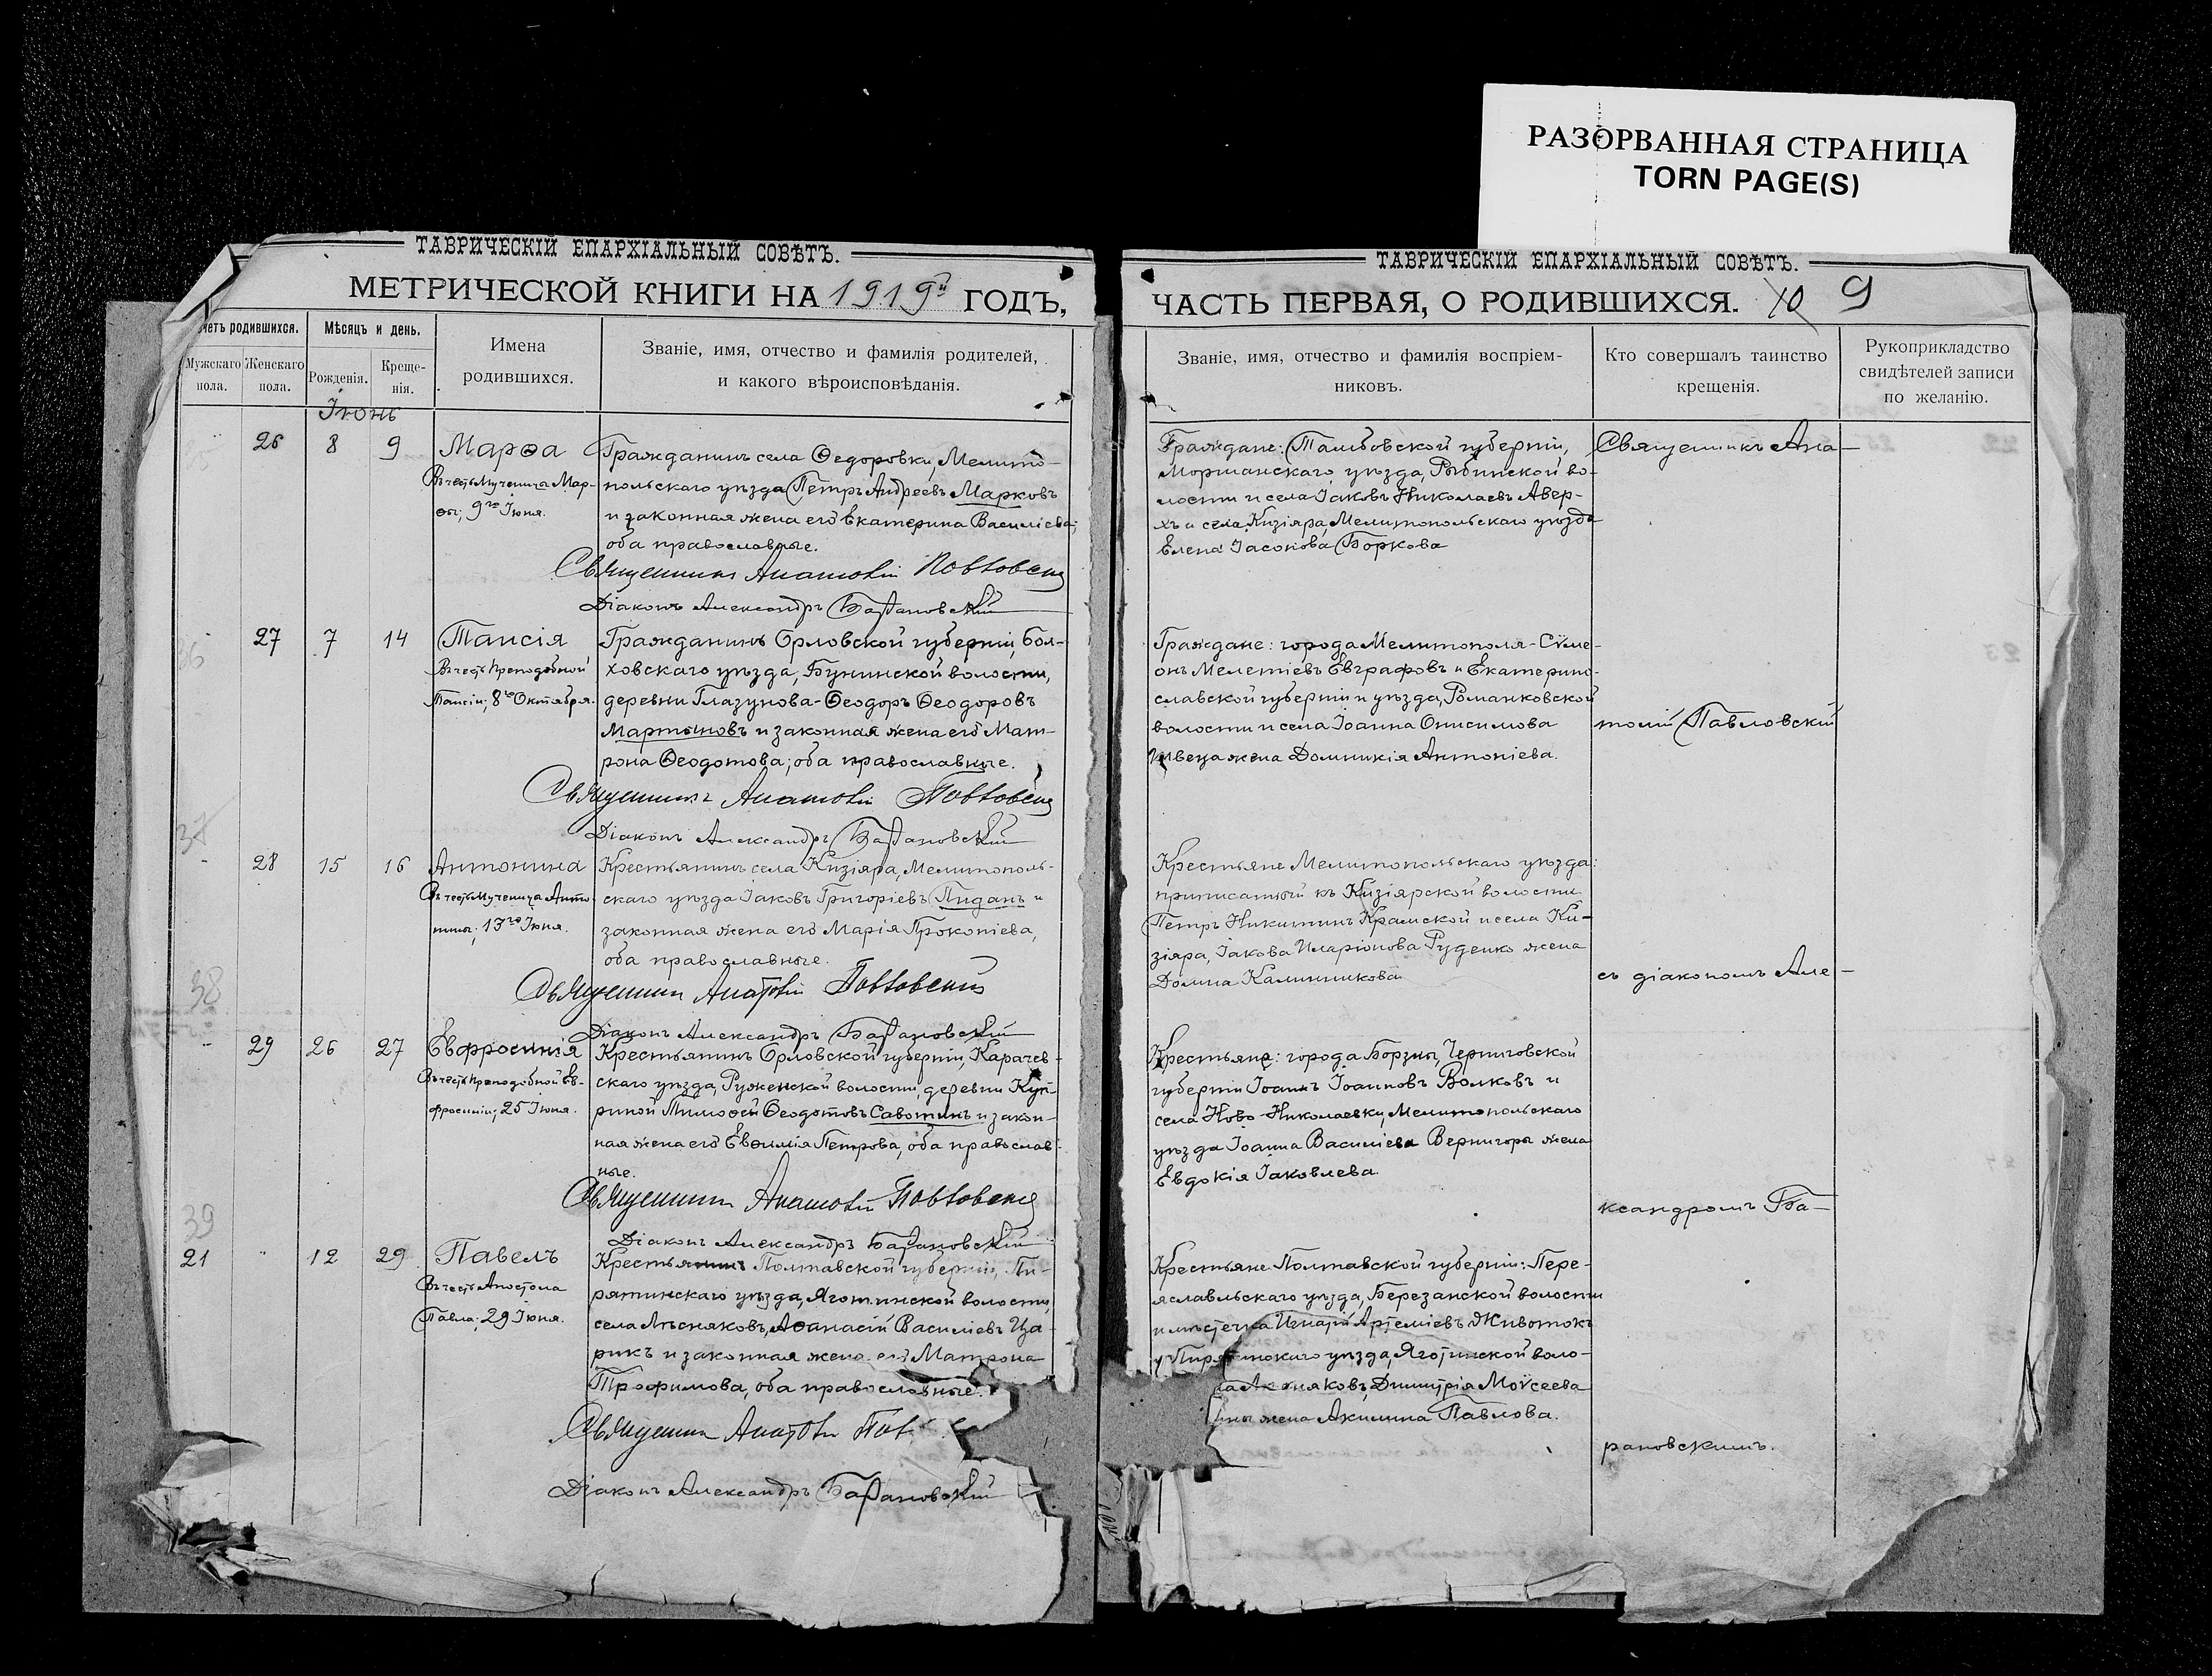 РАЗОРВАННАЯ СТРАНИЦА
TORN PAGE(S)
ТАВРИЧЕСКІЙ ЕПАРХІАЛЬНЫЙ СОВѢТЪ.
МЕТРИЧЕСКОЙ КНИГИ НА 1919й ГОДЪ,
четъ родившихся.
Мѣсяцъ и день.
Мужскаго пола.
Женскаго пола.
Рожденія.
Креще-
нія.
Имена
родившихся.
Званіе, имя, отчество и фамилія родителей,
и какого вѣроисповѣданія.
Іюнь
26 8 9 Марѳа
Въ честь Мученицы Мар-
ѳы; 9го Іюня.
Гражданинъ села Ѳедоровки, Мелито-
польскаго уѣзда Петръ Андреевъ Марковъ
и законная жена его Екатерина Василіева;
оба православные.
Священникъ Анатолій Павловскій
Діаконъ Александръ Барановскій
27 7 14 Таисія
Въ честь Преподобной
Таисіи; 8го Октября.
Гражданинъ Орловской губерніи, Бол-
ховскаго уѣзда, Бунинской волости,
деревни Глазунова - Ѳеодоръ Ѳеодоровъ
Мартыновъ и законная жена его Мат-
рона Ѳеодотова; оба православные.
Священникъ Анатолій Павловскій
Діаконъ Александръ Барановскій
37
28 15 16 Антонина
Въ честь Мученицы Анто-
нины; 13го Іюня.
Крестьянинъ села Кизіяра, Мелитополь-
скаго уѣзда Іаковъ Григоріевъ Пиданъ и
законная жена его Марія Прокопіева,
оба православные.
Священникъ Анатолій Павловскій
Діаконъ Александръ Барановскій
38
29 26 27 Евфросинія
Въ честь Преподобной Ев-
фросиніи; 25 Іюня.
Крестьянинъ Орловской губерніи, Карачев-
скаго уѣзда, Руженской волости, деревни Куп-
риной Тимоѳей Ѳеодотовъ Савотинъ и закон-
ная жена его Евѳимія Петрова, оба православ-
ные.
Священникъ Анатолій Павловскій
Діаконъ Александръ Барановскій
39
21 12 29 Павелъ
Въ честь Апостола
Павла; 29 Іюня.
Крестьянинъ Полтавской губерніи, Пи-
рятинскаго уѣзда, Яготинской волости,
села Лѣсняковъ, Аѳанасій Василіевъ Ца-
рикъ и законная жена его Матрона
Трофимова, оба православные.
Священникъ Анатолій Пав
Діаконъ Александръ Барановскій
ТАВРИЧЕСКІЙ ЕПАРХІАЛЬНЫЙ СОВѢТЪ.
ЧАСТЬ ПЕРВАЯ, О РОДИВШИХСЯ. 10 9
Званіе, имя, отчество и фамилія воспріем-
никовъ.
Кто совершалъ таинство
крещенія.
Рукоприкладство
свидѣтелей записи
по желанію.
Граждане: Тамбовской губерніи,
Моршанскаго уѣзда, Рыбинской во-
лости и села Іаковъ Николаевъ Авер-
хъ и села Кизіяра, Мелитопольскаго уѣзда
Елена Іасонова Боркова
Священникъ Ана-
Граждане: города Мелитополя - Сѵме-
онъ Мелетіевъ Евграфовъ и Екатерино-
славской губерніи и уѣзда, Романковской
волости и села Іоанна Онисимова
Швеца жена Домникія Антоніева.
толій Павловскій
Крестьяне Мелитопольскаго уѣзда:
приписанный къ Кизіярской волости
Петръ Никитинъ Крамской и села Ки-
зіяра, Іакова Иларіонова Руденко жена
Домна Калинникова
съ діакономъ Але-
Крестьяне: города Борзны, Черниговской
губерніи Іоаннъ Іоанновъ Волковъ и
села Ново-Николаевки, Мелитопольскаго
уѣзда Іоанна Василіева Вернигоры жена
Евдокія Іаковлева.
ксандромъ Ба-
Крестьяне Полтавской губерніи: Пере-
яславльскаго уѣзда, Березанской волости
и мѣстечка Игнатій Артеміевъ Животокъ
и Пирятинскаго уѣзда, Яготинской воло-
Лѣсняковъ, Димитрія Моѵсеева
жена Акилина Павлова.
рановскимъ.